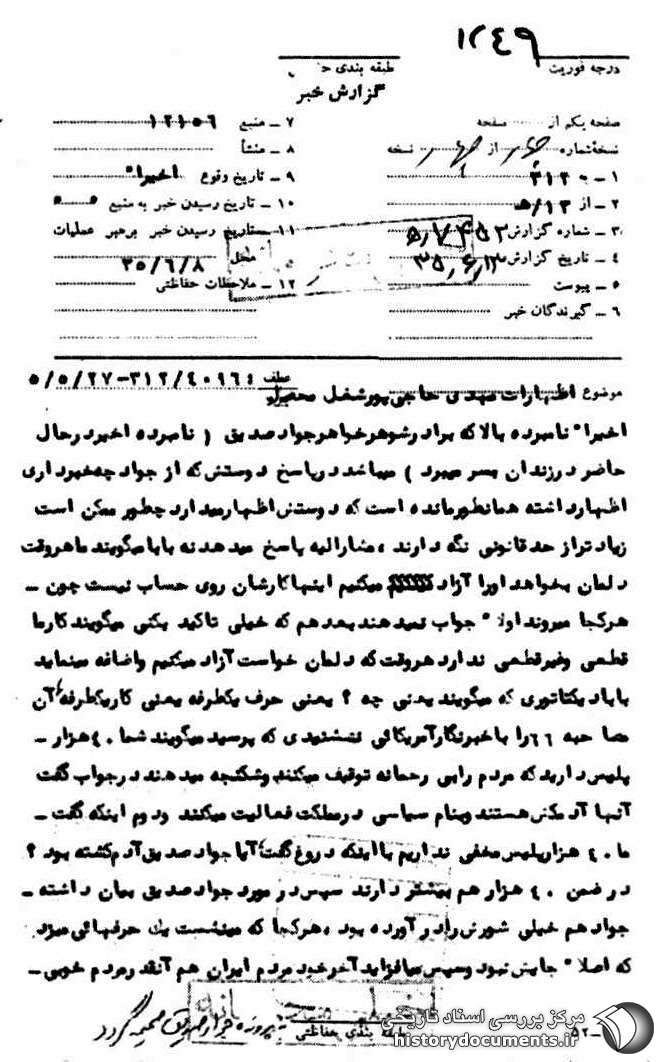 ۱۲۴۹
درجه فوریت
طبقه بندی
گزارش خبر
صفحه یکم از صفحه
نسخه‌شماره از نسخه
۱ ـ ۳۱۲
۲ ـ از ۱۳/ه
۳ ـ شماره گزارش
۴ ـ تاریخ گزارش ۳۵٫۶٫۱۳
۵ ـ پیوست
۶ ـ گیرندگان خبر
۷ ـ منبع ۱۲۱۵۶
۸ ـ منشأ
۹ ـ تاریخ وقوع اخیرا"
۱۰ ـ تاریخ رسیدن خبر به منبع
۱۱ ـ تاریخ رسیدن خبر برهبر عملیات
محل ۳۵/۶/۸
۱۲ ـ ملاحظات حفاظتی
عطف ۳۱۲/۴۰۹۶۴-۵/۵/۲۷
موضوع اظهارات مهدی حاجی‌پور شغل محصل
اخیرا" نامبرده بالا که برادر شوهر خواهر جواد صدیق ( نامبرده اخیر در حال
حاضر در زندان بسر میبرد ) میباشد در پاسخ دوستش که از جواد چه خبر داری
اظهار داشته همانطور مانده است که دوستش اظهار میدارد چطور ممکن است
زیادتر از حد قانونی نگه دارند ، مشارالیه پاسخ میدهد نه بابا میگویند ما هروقت
دلمان بخواهد اورا آزاد میکنیم اینها کارشان روی حساب نیست چون ـ
هرکجا میروند اولا" جواب نمیدهند بعد هم که خیلی تاکید بکنی میگویند کار ما
قطعی و غیرقطعی ندارد هروقت که دلمان خواست آزاد میکنیم و اضافه مینماید
بابا دیکتاتوری که میگویند یعنی چه ؟ یعنی حرف یکطرفه یعنی کار یکطرفه آن
مصاحبه ۶۶ را با خبرنگار آمریکائی نشنیدی که پرسید میگویند شما ۴۰ هزار ـ
پلیس دارید که مردم را بی رحمانه توقیف میکنند و شکنجه میدهند در جواب گفت
آنها آدمکش هستند و بنام سیاسی در مملکت فعالیت میکنند و دوم اینکه گفت ـ
ما ۴۰ هزار پلیس مخفی نداریم با اینکه دروغ گفت آیا جواد صدیق آدم کشته بود ؟
در ضمن ۴۰ هزار هم بیشتر دارند سپس در مورد جواد صدیق بیان داشته ـ
جواد هم خیلی شورش را در آورده بود ، هرکجا که مینشست یک حرفهائی میزد
که اصلا" جایش نبود و سپس میافزاید آخر خود مردم ایران هم آنقدر مردم خوبی ـ
طبقه بندی حفاظتی
مرکز بررسی اسناد تاریخی
historydocuments.ir